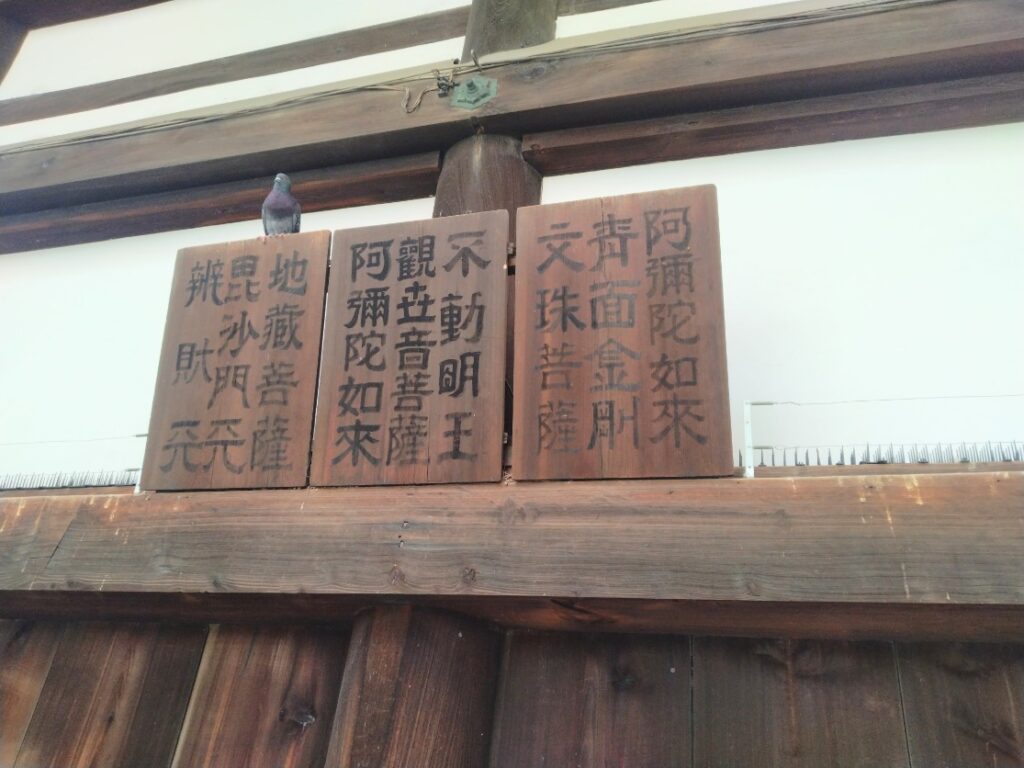 阿彌陀如來
青面金剛
文珠菩薩
不動明王
觀世音菩薩
阿彌陀如來
地蔵菩薩
毘沙門天
辨財天